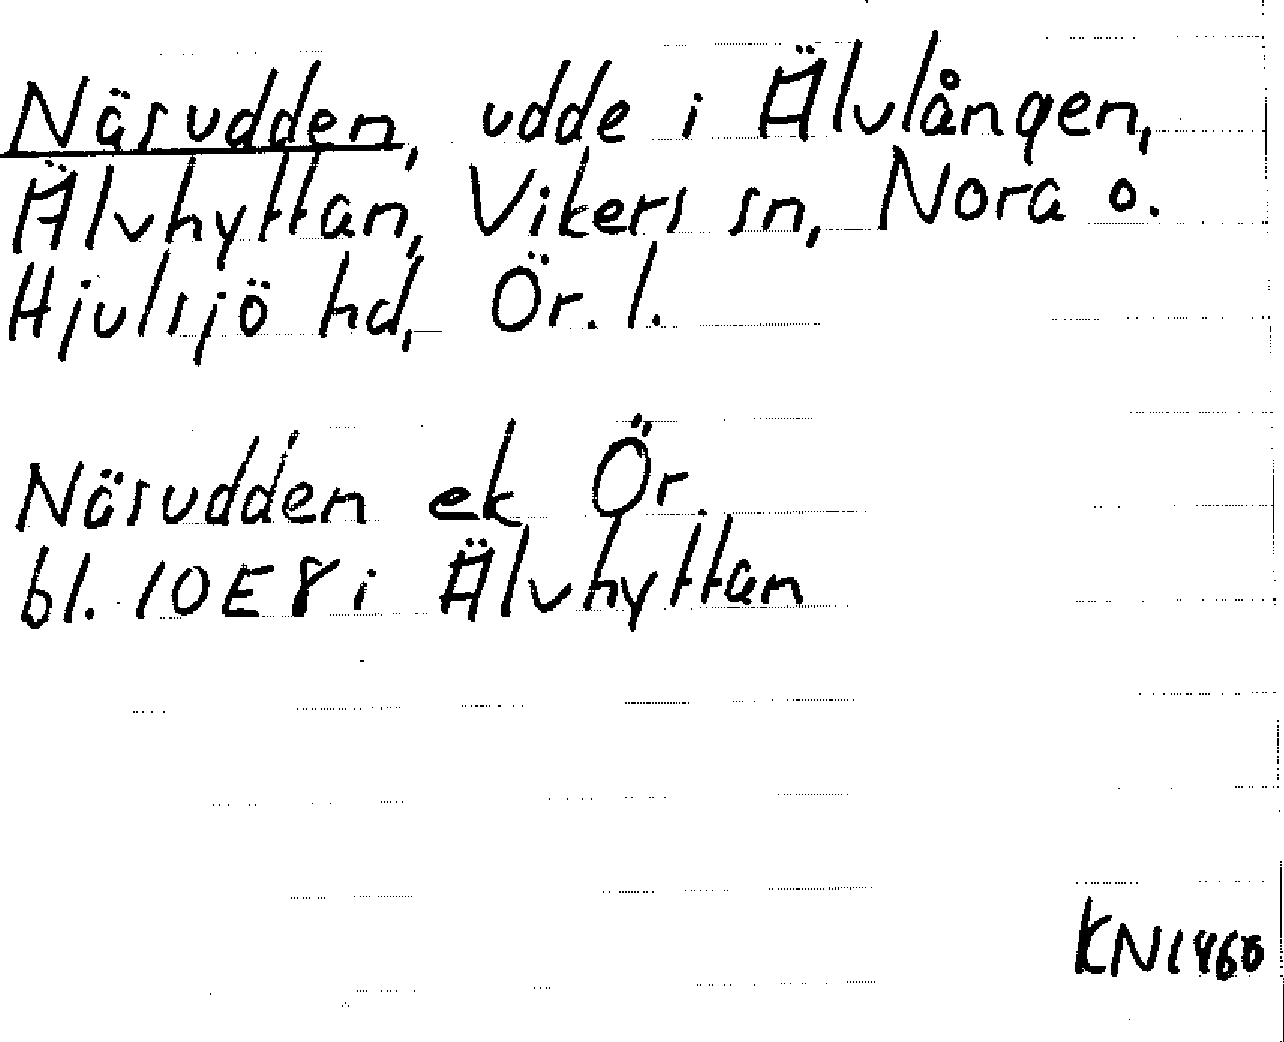 Näsudden, udde i Älvlången,
Älvhyttan, Vikers sn, Nora o.
Hjulsjö hd, Ör. l.
Näsudden ek Ör.
bl. 10E8i Älvhyttan
KN1960